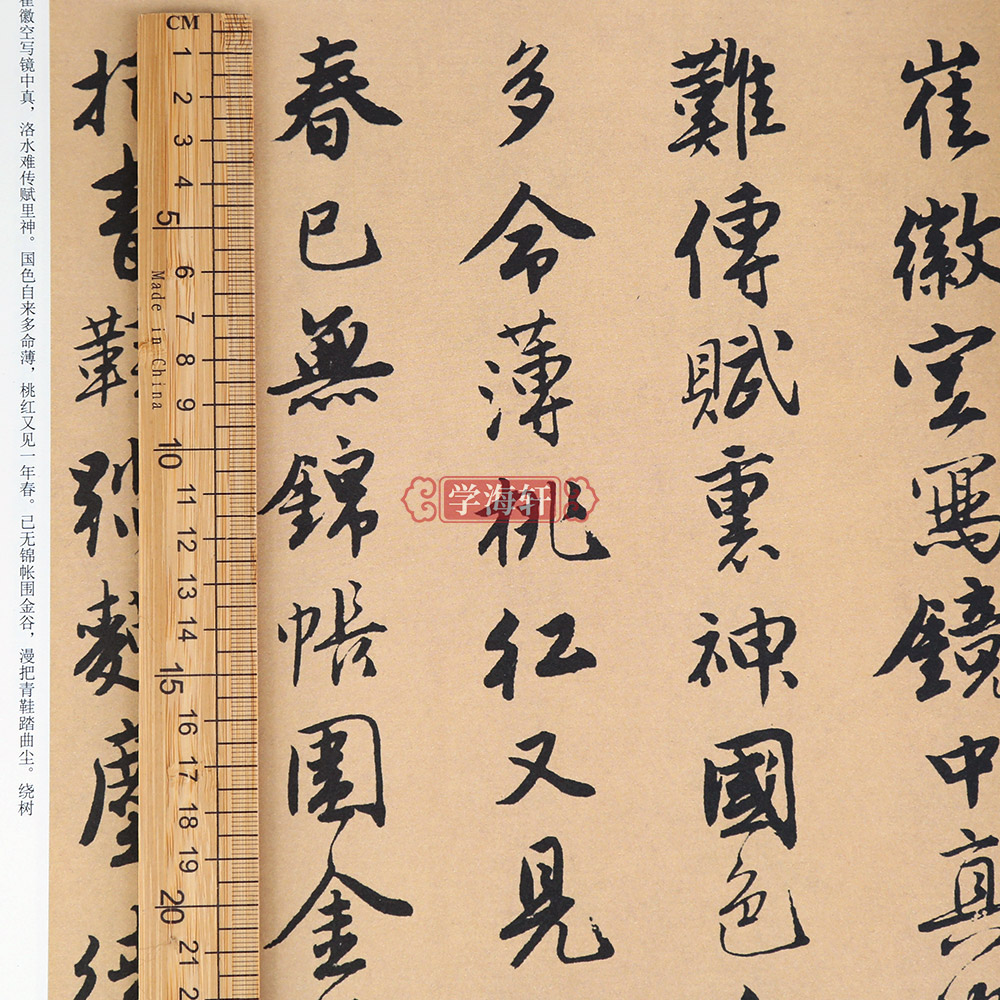 崔徽空寫鏡中真
難傳賦裏神國色
多命薄桃紅又見
春已無錦帳圍金
把青鞋塵
CM
1 2 3 4 5 6 7 8 9 10 11 12 13 14 15 16 17 18 19 20 21
Made in China
崔徽空写镜中真，洛水难传赋里神。国色自来多命薄，桃红又见一年春。已无锦帐围金谷，漫把青鞋踏曲尘。绕树
学海轩